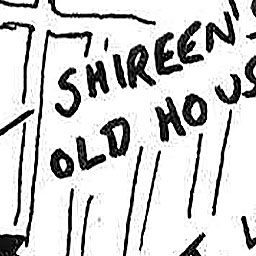 SHIREEN'S
OLD HOUS